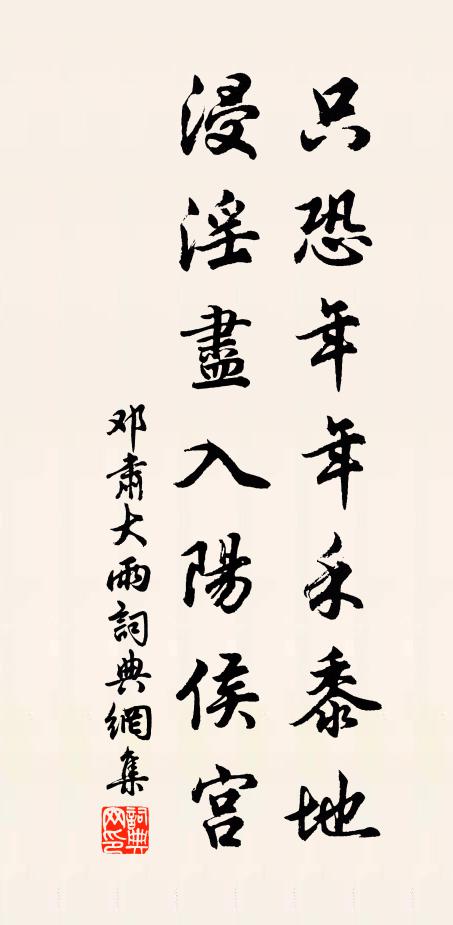 只恐年年禾黍地
浸淫盡入陽侯宫
邓肅大雨詞典網集
詞典網印